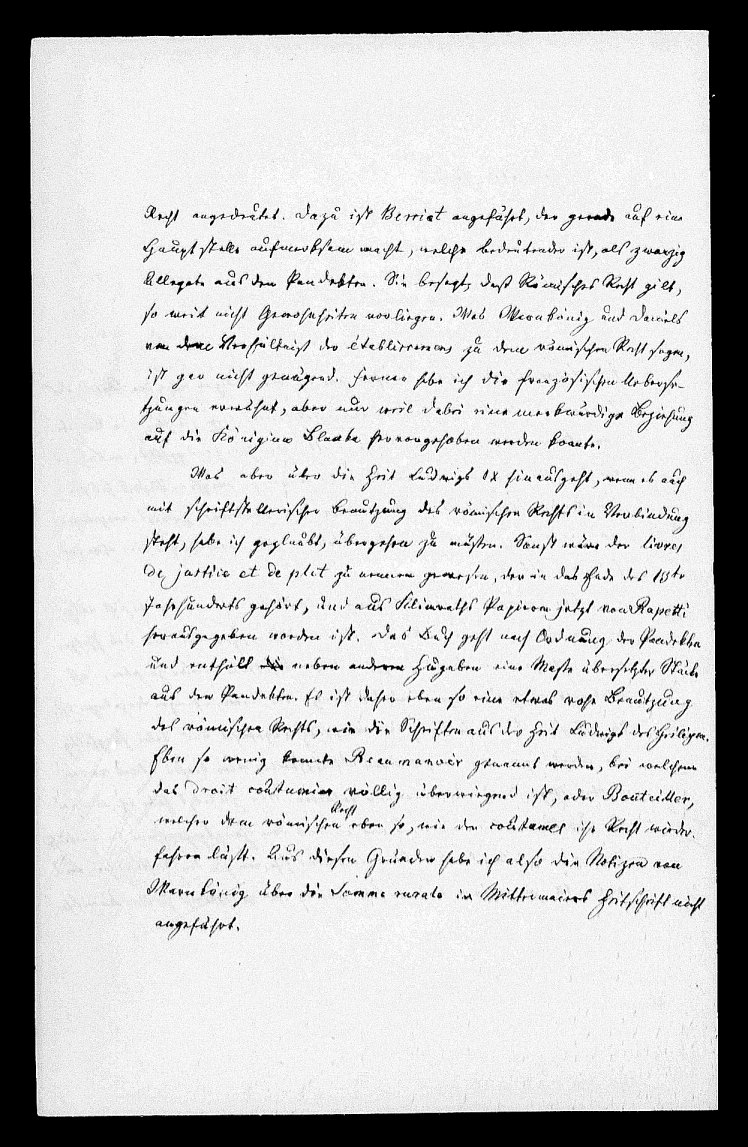 Recht angedeutet. Dazu ist Berriat angeführt, der gerade auf eine
Hauptstelle aufmerksam macht, welche bedeutender ist, als zwanzig
Allegate aus den Pandekten. Sie besagt, daß Römisches Recht gilt,
so weit nicht Gewohnheiten vorliegen. Was Warnkönig und Daniels
von dem Verhältniß der établissemens zu dem römischen Recht sagen,
ist gar nicht genügend. Ferner habe ich die französischen Ueberse-
tzungen erwähnt, aber nur weil dabei eine merkwürdige Beziehung
auf die Königinn Blanka hervorgehoben werden konnte.
Was aber über die Zeit Ludwigs IX hinausgeht, wenn es auch
mit schriftstellerischer Benutzung des römischen Rechts in Verbindung
steht, habe ich geglaubt, übergehen zu müssen. Sonst wäre der livre,
de justice et de plet zu nennen gewesen, der in das Ende des 13ten
Jahrhunderts gehört, und aus Klimraths Papieren jetzt von Rapetti
herausgegeben worden ist. Das Buch geht nach Ordnung der Pandekten
und enthält die neben anderen Zugaben eine Masse übersetzter Stücke
aus den Pandekten. Es ist daher eben so eine etwas rohe Benutzung
des römischen Rechts, wie die Schriften aus der Zeit Ludwigs des Heiligen.
Eben so wenig konnte Beaumanoir genannt werden, bei welchem
das droit coutumier völlig überwiegend ist, oder Bouteiller,
welcher dem römischen Recht eben so, wie den coutumes ihr Recht wieder-
fahren läßt. Aus diesen Gründen habe ich also die Notizen von
Warnkönig über die Somme rurale in Mittermaiers Zeitschrift nicht
angeführt.